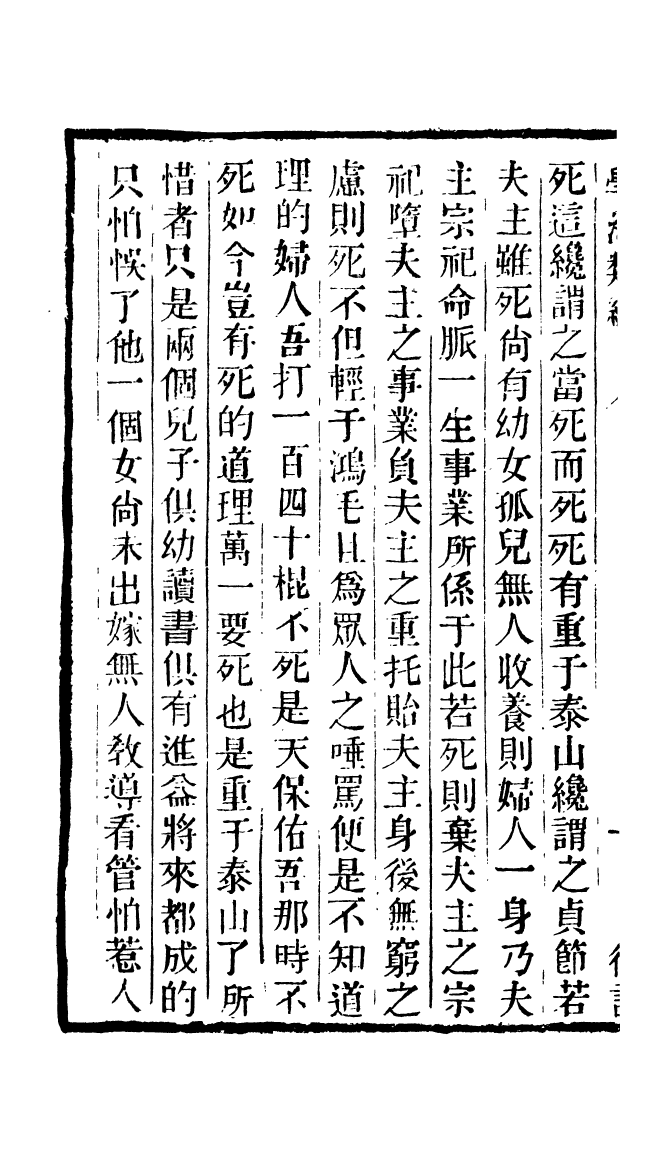 死這纔謂之當死而死死有重于泰山纔謂之貞節若
夫主雖死尚有幼女孤兒無人收養則婦人一身乃夫
主宗祀命脈一生事業所係于此若死則棄夫主之宗
祀墮夫主之事業負夫主之重托貽夫主身後無窮之
慮則死不但輕于鴻毛且爲眾人之唾罵便是不知道
理的婦人吾打一百四十棍不死是天保佑吾那時不
死如今豈有死的道理萬一要死也是重于泰山了所
惜者只是兩個兒子俱幼讀書俱有進益將來都成的
只怕悞了他一個女尚未出嫁無人教導看管怕惹人